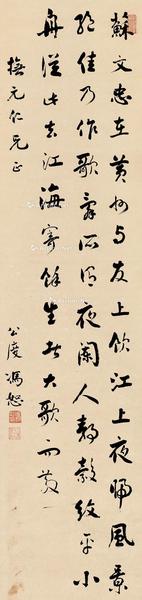 蘇文忠在黃州与友上飲江上夜歸風景
絕佳乃作歌辭所謂夜闌人靜縠紋平小
舟從此去江海寄餘生者大歌而散
撫元仁兄正
公度馮恕